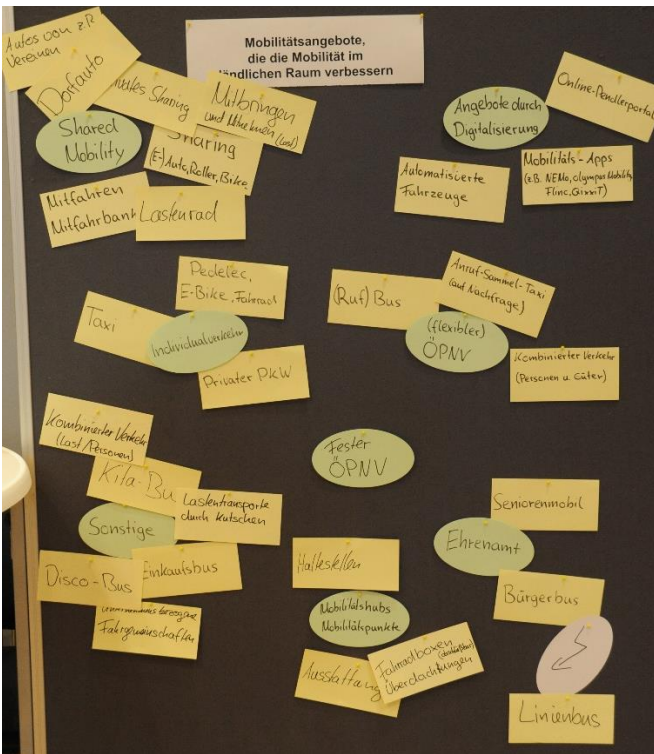 Mobilitätsangebote,
die die Mobilität im
ländlichen Raum verbessern
Autos von z.B.
Vereinen
Dorfauto
Sharing
Mitbringen
und Mitnehmen (Last)
Shared
Mobility
Sharing
(E-)Auto, Roller, Bike,
Mitfahren
Mitfahrbank
Lastenrad
Angebote durch
Digitalisierung
Online-Pendlerportal
Automatisierte
Fahrzeuge
Mobilitäts-Apps
(z.B. NEMo, olympus Mobility
Flinc, QixxiT)
Pedelec,
E-Bike, Fahrrad
Taxi
Individualverkehr
Privater PKW
(Ruf) Bus
Anruf-Sammel-Taxi
(auf Nachfrage)
(flexibler)
ÖPNV
Kombinierter Verkehr
(Personen u. Güter)
Kombinierter Verkehr
(Last/Personen)
Kita-Bu
Lastentransporte
durch Kutschen
Sonstige
Disco-Bus
Einkaufsbus
Fahrgemeinschaften
Fester
ÖPNV
Haltestellen
Mobilitätshubs
Mobilitätspunkte
Ausstattung
Fahrradboxen
Überdachtungen
Seniorenmobil
Ehrenamt
Bürgerbus
Linienbus